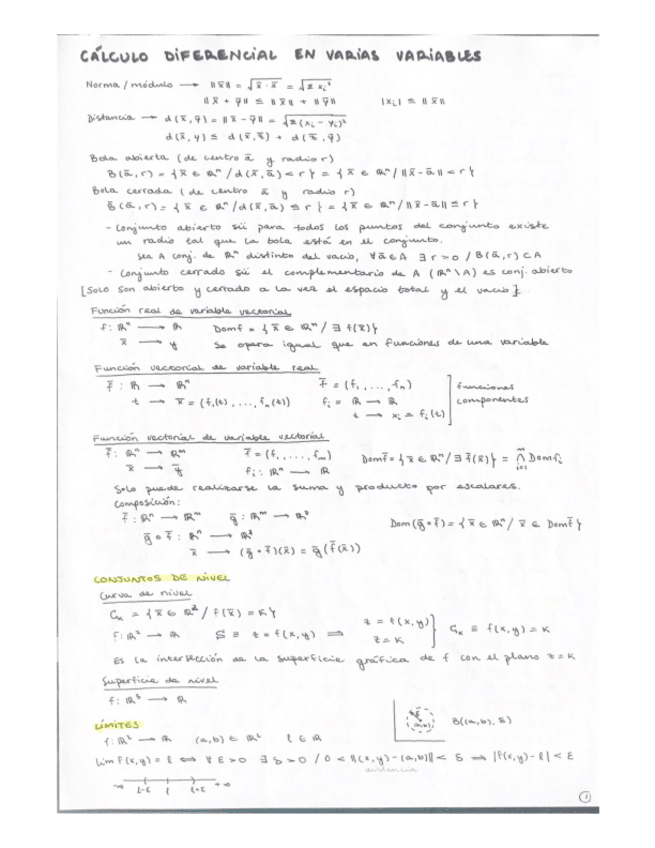 CÁLCULO DIFERENCIAL EN VARIAS VARIABLES
Norma / módulo → ||x̄|| = √(x̄ · x̄) = √(Σ xᵢ²)
||x̄ + ȳ|| ≤ ||x̄|| + ||ȳ||    |xᵢ| ≤ ||x̄||
Distancia → d(x̄, ȳ) = ||x̄ - ȳ|| = √(Σ(xᵢ - yᵢ)²)
d(x̄, y) ≤ d(x̄, z̄) + d(z̄, ȳ)
Bola abierta (de centro ā y radio r)
B(ā, r) = { x̄ ∈ ℝⁿ / d(x̄, ā) < r } = { x̄ ∈ ℝⁿ / ||x̄ - ā|| < r }
Bola cerrada (de centro ā y radio r)
B̄(ā, r) = { x̄ ∈ ℝⁿ / d(x̄, ā) ≤ r } = { x̄ ∈ ℝⁿ / ||x̄ - ā|| ≤ r }
- Conjunto abierto sii para todos los puntos del conjunto existe
un radio tal que la bola está en el conjunto.
Sea A conj. de ℝⁿ distinto del vacío, ∀ ā ∈ A ∃ r > 0 / B(ā, r) ⊂ A
- Conjunto cerrado sii el complementario de A (ℝⁿ \ A) es conj. abierto
[Solo son abierto y cerrado a la vez el espacio total y el vacío]
Función real de variable vectorial
f: ℝⁿ → ℝ    Dom f = { x̄ ∈ ℝⁿ / ∃ f(x̄) }
x̄ → y    Se opera igual que en funciones de una variable
Función vectorial de variable real
f̄ : ℝ → ℝⁿ    f̄ = (f₁, ..., fₙ)    funciones
t → x̄ = (f₁(t), ..., fₙ(t))    fᵢ = ℝ → ℝ    componentes
t → xᵢ = fᵢ(t)
Función vectorial de variable vectorial
f̄: ℝⁿ → ℝᵐ    f̄ = (f₁, ..., fₘ)    Dom f̄ = { x̄ ∈ ℝⁿ / ∃ f̄(x̄) } = ⋂ᵢ₌₁ᵐ Dom fᵢ
x̄ → ȳ    fᵢ: ℝⁿ → ℝ
Solo puede realizarse la suma y producto por escalares.
Composición:
f̄ : ℝⁿ → ℝᵐ    ḡ : ℝᵐ → ℝᵖ    Dom(ḡ ∘ f̄) = { x̄ ∈ ℝⁿ / x̄ ∈ Dom f̄ }
ḡ ∘ f̄ : ℝⁿ → ℝᵖ
x̄ → (ḡ ∘ f̄)(x̄) = ḡ(f̄(x̄))
CONJUNTOS DE NIVEL
Curva de nivel
Cₖ = { x̄ ∈ ℝ² / f(x̄) = K }
f: ℝ² → ℝ    S ≡ z = f(x, y) ⟹ z = f(x, y)    z = K    Cₖ ≡ f(x, y) = K
Es la intersección de la superficie gráfica de f con el plano z = K
Superficie de nivel
f: ℝ³ → ℝ
LÍMITES
B((a, b), δ)
f: ℝ² → ℝ    (a, b) ∈ ℝ²    l ∈ ℝ
lim f(x, y) = l ⟺ ∀ ε > 0 ∃ δ > 0 / 0 < ||(x, y) - (a, b)|| < δ ⟹ |f(x, y) - l| < ε
distancia
-∞    l-ε    l    l+ε    +∞
1